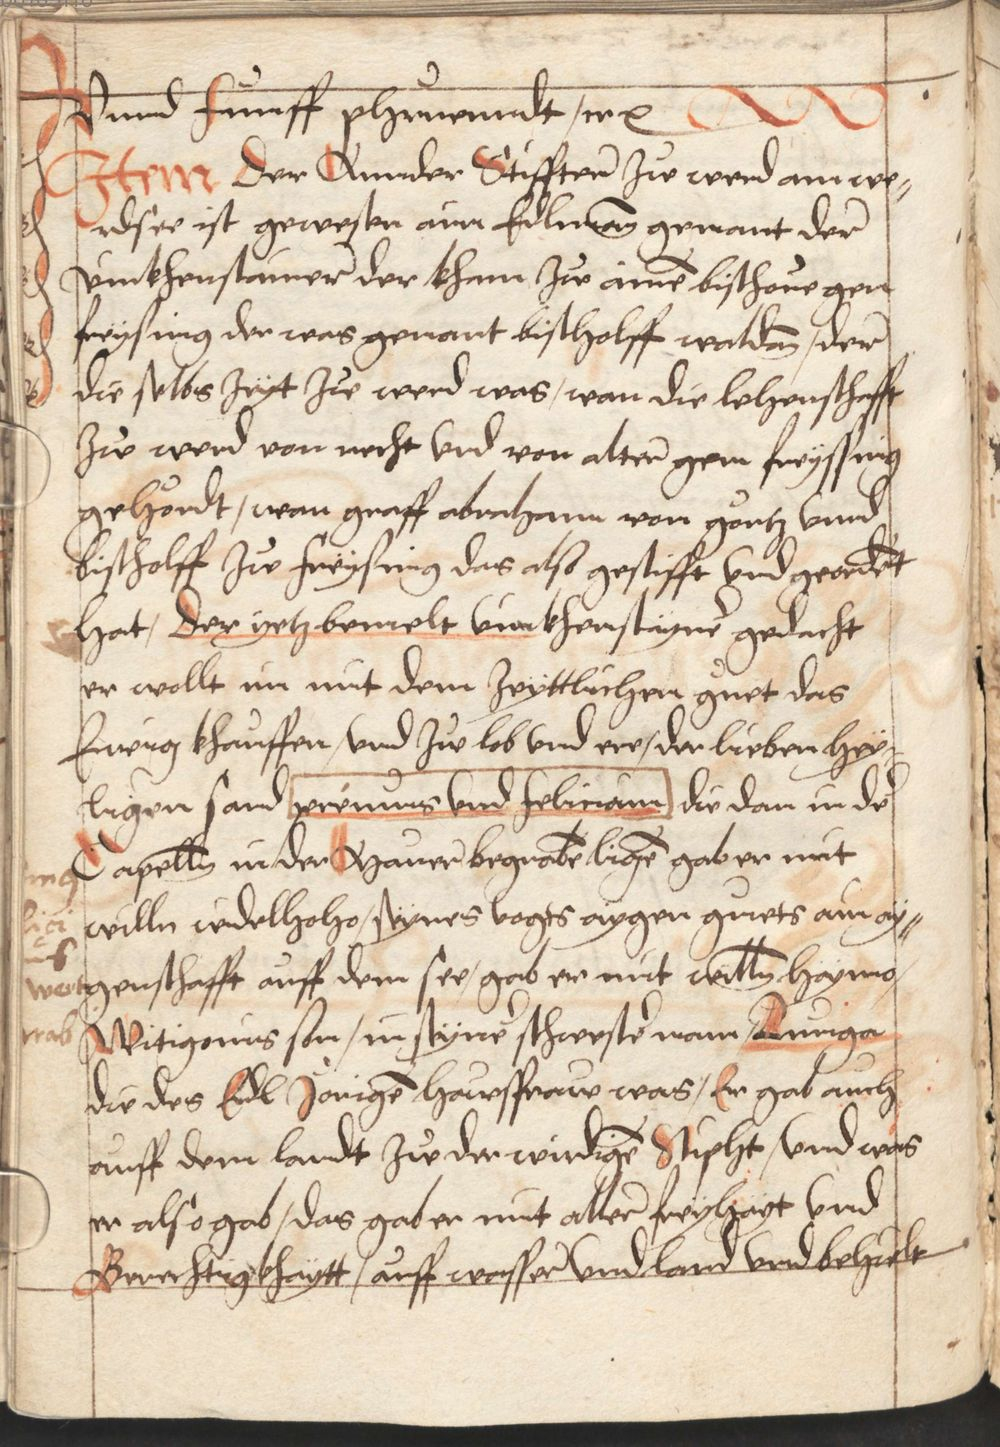 Vnnd Funff phruenndt / etc
Item Der Annder Stiffter Zw werd am we„
rdsee ist gewesen ain Edlman genant der
vinkhenstainer der kham Zw aime bischoue gen
freysing der was genant bischolff waldan / der
die selbs Zeyt Zw werd was / wan die lehenschafft
Zw werd von recht vnd von alter gein freyssing
gehördt / wan graff abraham von gortz vnnd
bischolff Zw freysing das also gestifft vnd geordent
hat / Der yetz bemelt vinkhenstayner gedacht
er wollt im mit dem Zeyttlichen guet das
Ewig khauffen / vnd Zw lob vnd ere / der lieben hey„
ligen sand primus vnd felician die dan in der
Capelln in der Mauer begrabe lige gab er mit
willn edelhoho / seynes vogts aygen guets ain ay„
genschafft auff dem see / gab er mit willn haymo /
Witigonus son / in seyner schwester nam / Anniga
die des Edl Jorige hawsfraw was / Er gab auch
auff dem landt Zw der wirdige Stipht / vnd was
er also gab / das gab er mit aller freyhayt vnd
Gerechtigkhaytt / auff wasser vnd land vnd behielt